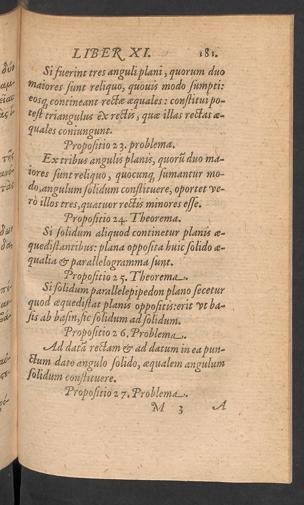 LIBER XI. 181.
Si fuerint tres anguli plani, quorum duo
maiores sunt reliquo, quouis modo sumpti:
eosq́; contineant rectæ æquales: constitui po-
test triangulus ex rectis, quæ illas rectas æ-
quales coniungunt.
Propositio 23. problema.
Ex tribus angulis planis, quorũ duo ma-
iores sunt reliquo, quocunq́; sumantur mo-
do, angulum solidum constituere, oportet ve-
rò illos tres, quatuor rectis minores esse.
Propositio 24. Theorema.
Si solidum aliquod contineatur planis æ-
quedistantibus: plana opposita huic solido æ-
qualia & parallelogramma sunt.
Propositio 25. Theorema.
Si solidum parallelepipedon plano secetur
quod æquedistat planis oppositis: erit vt ba-
sis ad basin, sic solidum ad solidum.
Propositio 26. Problema.
Ad datã rectam & ad datum in ea pun-
ctum dato angulo solido, æqualem angulum
solidum constituere.
Propositio 27. Problema.
M 3 A